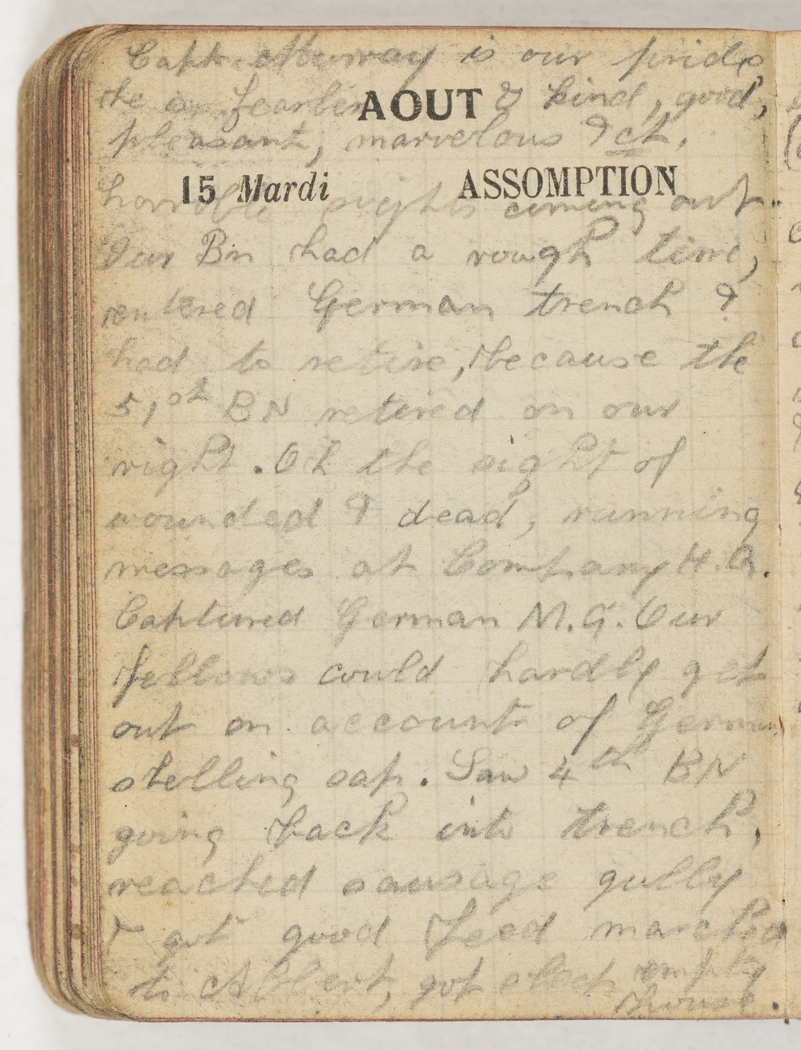 Capt. Murray is our pride
he is fearless & kind, good,
AOUT
pleasant, marvelous &ct.
15 Mardi ASSOMPTION
horrible sights coming out.
Our Bn had a rough time,
entered German trench &
had to retire, because the
51st BN retired on our
right. Oh the sight of
wounded & dead, running
messages at Company H.Q.
Captured German M.G. Our
fellows could hardly get
out on account of German
shelling sap. Saw 4th BN
going back into trench,
reached sausage gully
& got good feed marched
to Albert, got sleep empty
house.